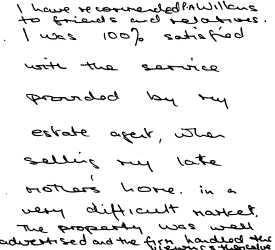 I have recommended P.A Wilkins
to friends and relatives.
I was 100% satisfied
with the service
provided by my
estate agent, when
selling my late
mothers' home. in a
very difficult market.
The property was well
advertised and the firm handled the
viewings themselves